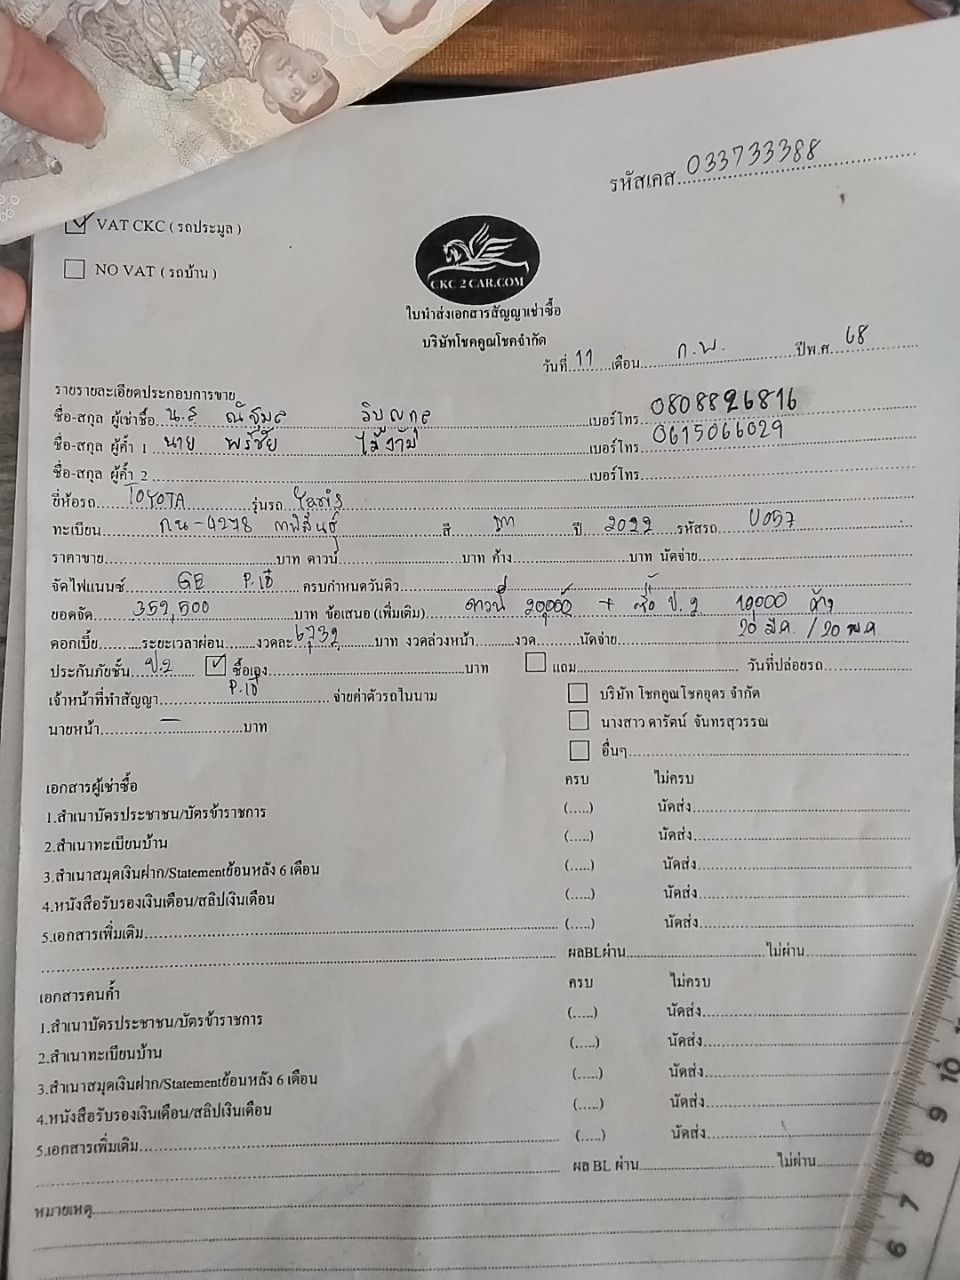 รหัสเคส.....033733388
☑ VAT CKC ( รถประมูล )
☐ NO VAT ( รถบ้าน )
CKC 2 CAR.COM
ใบนำส่งเอกสารสัญญาเช่าซื้อ
บริษัทโชคคูณโชคจำกัด
วันที่ 11 เดือน ก.พ. ปีพ.ศ. 68
รายรายละเอียดประกอบการขาย
ชื่อ-สกุล ผู้เช่าซื้อ น.ส ณัฐมล วิบูญกุล เบอร์โทร 0808826816
ชื่อ-สกุล ผู้ค้ำ 1 นาย พรชัย ไม้งาม เบอร์โทร 0615066029
ชื่อ-สกุล ผู้ค้ำ 2 เบอร์โทร
ยี่ห้อรถ TOYOTA รุ่นรถ Yaris
ทะเบียน กน-4278 กาฬสินธุ์ สี เทา ปี 2022 รหัสรถ U057
ราคาขาย บาท ดาวน์ บาท ค้าง บาท นัดจ่าย
จัดไฟแนนซ์ GE P.เอ๋ ครบกำหนดวันคิว
ยอดจัด 359,500 บาท ข้อเสนอ (เพิ่มเติม) ดาวน์ 20,000 + ซื้อ ป.2 10,000 ค้าง
20 มี.ค. / 20 พ.ค
ดอกเบี้ย ระยะเวลาผ่อน งวดละ 6,732 บาท งวดล่วงหน้า งวด นัดจ่าย
ประกันภัยชั้น ป.2 ☑ ซื้อเอง บาท ☐ แถม วันที่ปล่อยรถ
เจ้าหน้าที่ทำสัญญา P.เอ๋ จ่ายค่าตัวรถในนาม ☐ บริษัท โชคคูณโชคอุดร จำกัด
นายหน้า – บาท ☐ นางสาว ดารัตน์ จันทรสุวรรณ
☐ อื่นๆ
เอกสารผู้เช่าซื้อ ครบ ไม่ครบ
1.สำเนาบัตรประชาชน/บัตรข้าราชการ (.....) นัดส่ง
2.สำเนาทะเบียนบ้าน (.....) นัดส่ง
3.สำเนาสมุดเงินฝาก/Statementย้อนหลัง 6 เดือน (.....) นัดส่ง
4.หนังสือรับรองเงินเดือน/สลิปเงินเดือน (.....) นัดส่ง
5.เอกสารเพิ่มเติม (.....) นัดส่ง
ผลBLผ่าน ไม่ผ่าน
เอกสารคนค้ำ ครบ ไม่ครบ
1.สำเนาบัตรประชาชน/บัตรข้าราชการ (.....) นัดส่ง
2.สำเนาทะเบียนบ้าน (.....) นัดส่ง
3.สำเนาสมุดเงินฝาก/Statementย้อนหลัง 6 เดือน (.....) นัดส่ง
4.หนังสือรับรองเงินเดือน/สลิปเงินเดือน (.....) นัดส่ง
5.เอกสารเพิ่มเติม (.....) นัดส่ง
ผล BL ผ่าน ไม่ผ่าน
หมายเหตุ
10
9
8
7
6